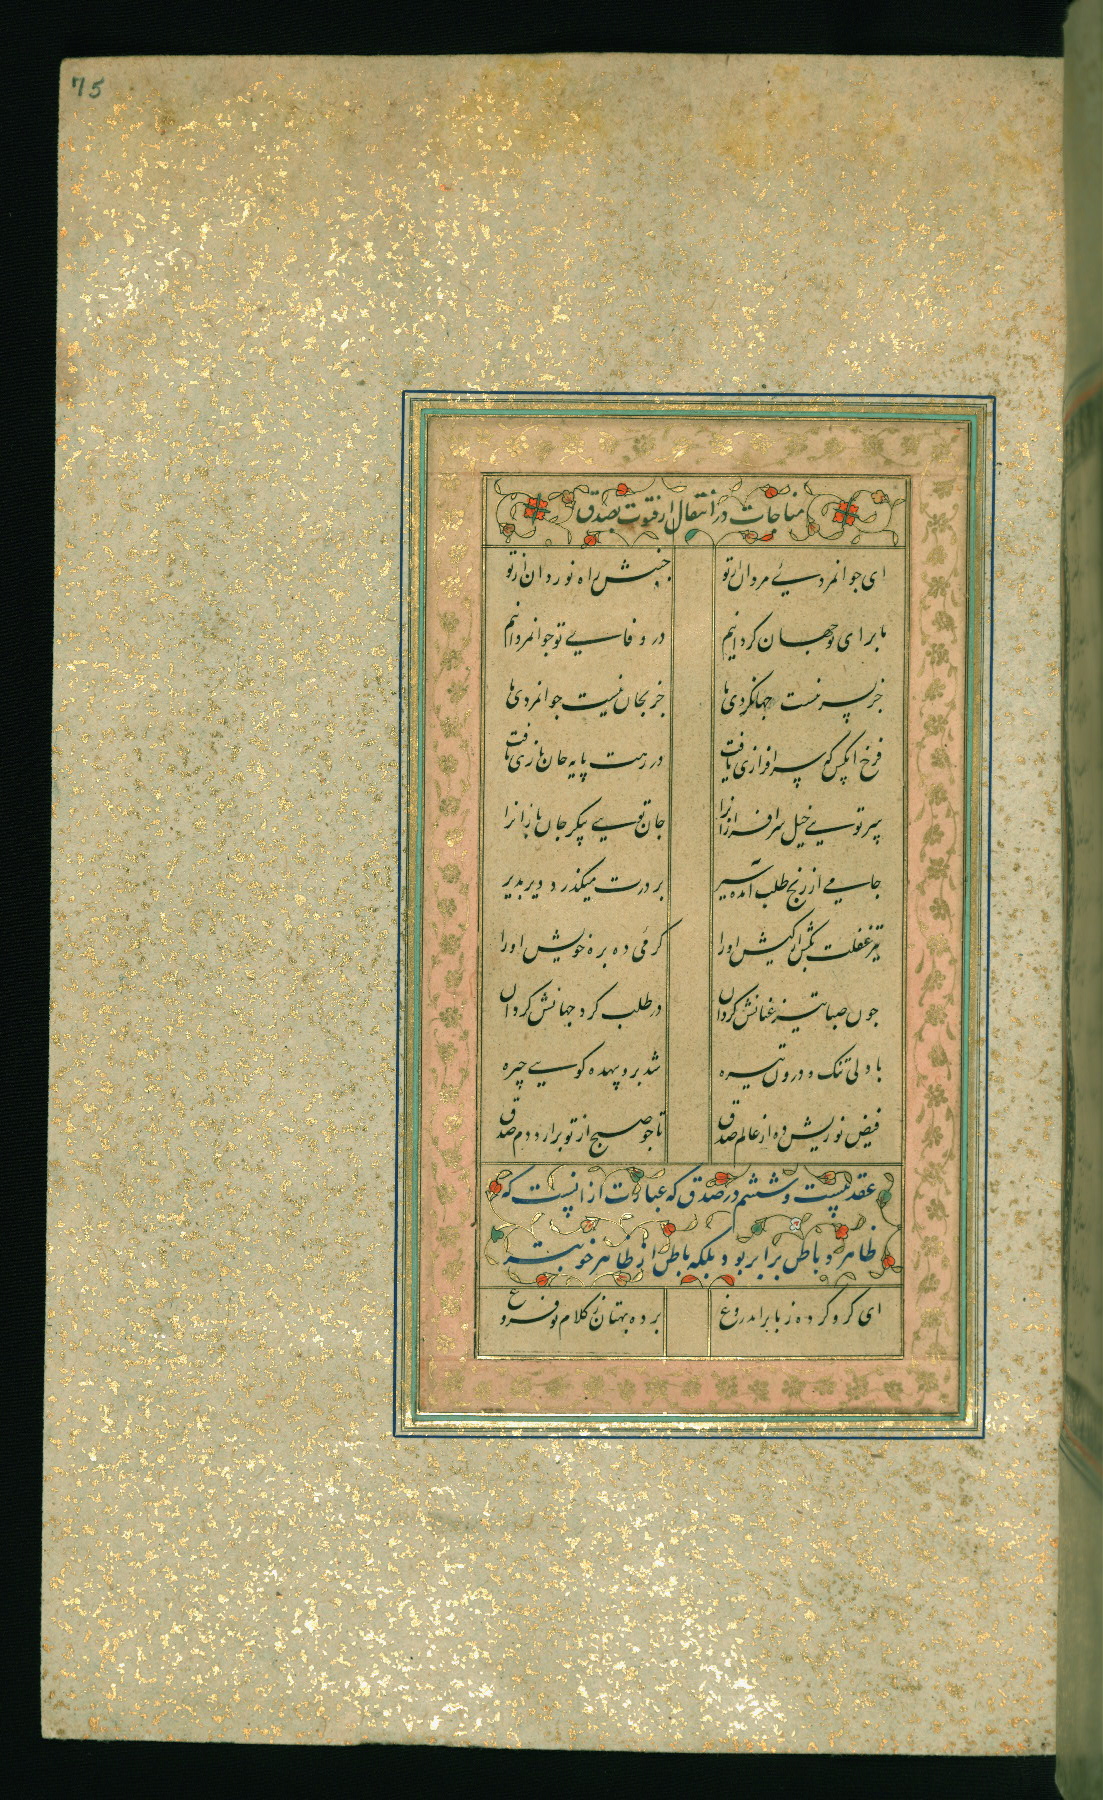 75
مناجات در انتقال از فتوت بصدق
ای جوانمردیٔ مردان از تو جنبش راه نوردان از تو
ما برای تو جهان گردانیم در وفای تو جوانمردانیم
جز بسر نیست جهانگردی ما جز بجان نیست جوانمردی ما
فرخ انکس که سرافرازی یافت در رهت پایه جان بازی یافت
سر تویی خیل سرافرازانرا جان تویی پیکر جان بازانرا
جامی از رنج طلب امده سیر بر درت میگذرد دیر بدیر
تیر غفلت بکش از کیش او را کرمی ده بره خویش او را
جون صبا تیز عنانش کردان در طلب کرد جهانش کردان
با دلی تنک و درون تیره شد برو بیهده کویی چیره
فیض نوریش ده از عالم صدق تا جو صبح از تو برارد دم صدق
عقد بیست و ششم در صدق که عبارت از انست که
ظاهر و باطن برابر بود بلکه باطن از ظاهر خوبتر
ای کرو کرده زبانرا بدروغ برده بهتان ز کلام تو فروغ